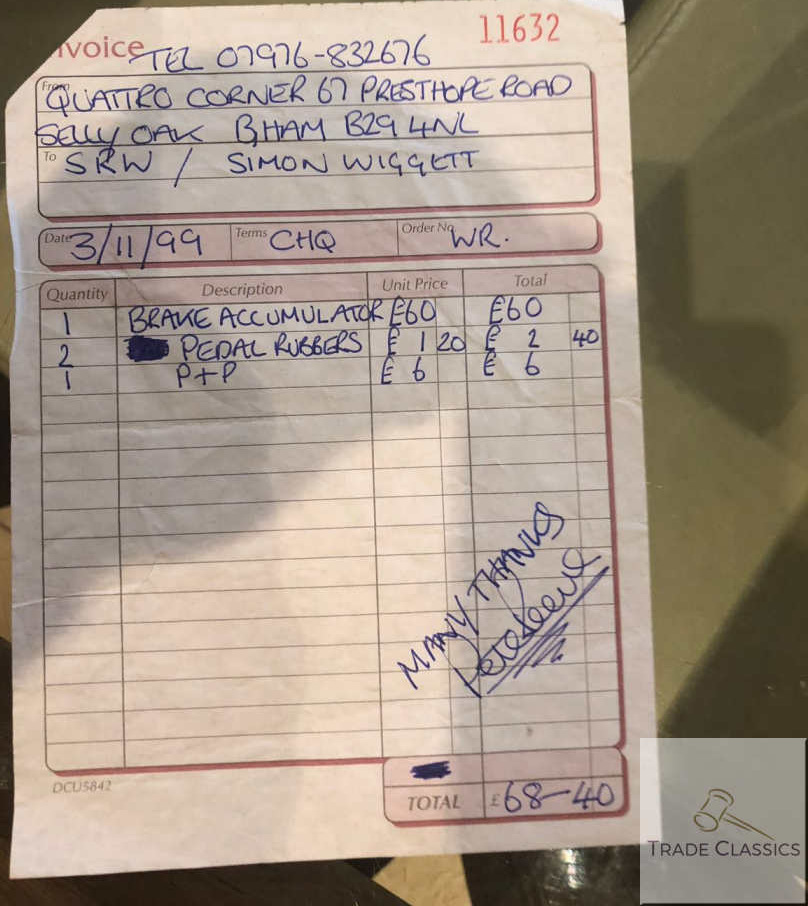 nvoice TEL 07976-832676 11632
From QUATTRO CORNER 67 PRESTHOPE ROAD
SELLY OAK B,HAM B29 4NL
To SRW / SIMON WIGGETT
Date 3/11/99 Terms CHQ Order No. WR.
Quantity Description Unit Price Total
1 BRAKE ACCUMULATOR £60 £60
2 PEDAL RUBBERS £ 1 20 £ 2 40
1 P+P £ 6 £ 6
MANY THANKS
DCU5842
TOTAL £68-40
TRADE CLASSICS